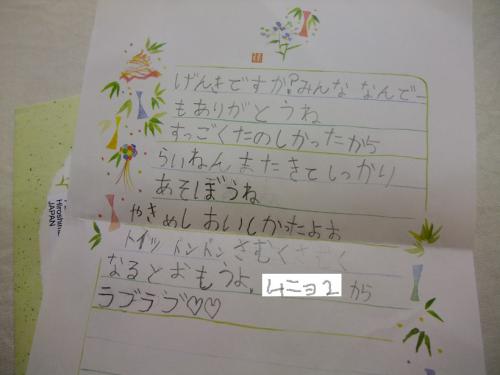 げんきですか?みんな なんで
もありがとうね
すっごくたのしかったから
らいねんまたきてしっかり
あそぼうね
やきめしおいしかったよお
トイツ ドンドンさむく
なるとおもうよ。ムニョ2から
ラブラブ♡♡
Hiroshima
JAPAN